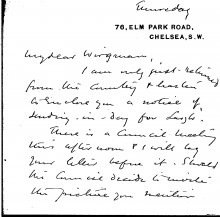 Thursday
76, ELM PARK ROAD,
CHELSEA, S.W.
My dear Wirgman,
I am only just returned
from the Country & hasten
to enclose you a notice of
sending-in-day for Highs.
There is a Council Meeting
this afternoon & I will lay
your letter before it. Should
the Council decide to invite
the picture you mention